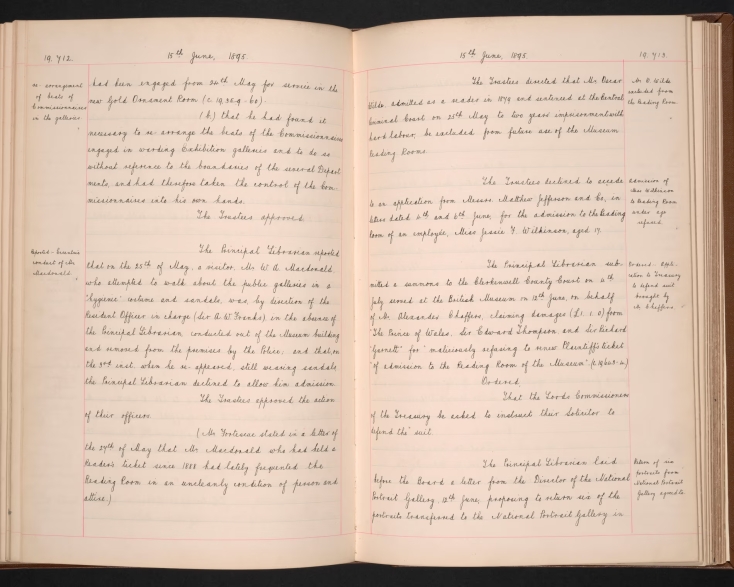 19,712.
15th June, 1895.
re-arrangement
of beats of
Commissionnaires
in the galleries
had been engaged from 24th May for service in the
new Gold Ornament Room
(b) that he had found it
necessary to re-arrange the beats of the Commissionnaires
engaged in warding Exhibition galleries and to do so
without reference to the boundaries of the several Depart
ments, and had therefore taken the control of the Com-
missionnaires into his own hands.
The Trustees approved.
Reported - Excentric
conduct of Mr
Macdonald
The Principal Librarian reported
that on the 25th of May, a visitor, Mr W. A. Macdonald
who attempted to walk about the public galleries in a
'hygienic' costume and sandals, was, by direction of the
Resident Officer in charge (Sir A. W. Franks) in the absence of
the Principal Librarian, conducted out of the Museum building
and removed from the premises by the Police; and that, on
the 3rd inst. when he re-appeared, still wearing sandals
the Principal Librarian declined to allow him admission.
The Trustees approved the action
of their officers.
(Mr Fortescue stated in a letter of
the 27th of May that Mr Macdonald who has held a
Readers ticket since 1888 had lately frequented the
Reading Room in an uncleanly condition of person and
attire.)
15th June, 1895.
19,713.
The Trustees directed that Mr Oscar
Wilde admitted as a reader in 1879 and sentenced at the Central
Criminal Court on 25th May to two years imprisonment with
hard labour, be excluded from future use of the Museum
Reading Rooms.
Mr O. Wilde
excluded from
the Reading Room
The Trustees declined to accede
to an application from Messrs Matthew Jefferson and Co, in
letters dated 4th and 6th June, for the admission to the Reading
Room of an employee, Miss Jessie F. Wilkinson, aged 17.
Admission of
Miss Wilkinson
to Reading Room
under age
refused
The Principal Librarian sub-
mitted a summons to the Clerkenwell County Court on
July served at the British Museum on 12th June, on behalf
of Mr Alexander Chaffers, claiming damages (£1. 1. 0) from
"The Prince of Wales, Sir Edward Thompson and Sir Richard
Garnett" for "maliciously refusing to renew Plaintiff's ticket
of admission to the Reading Room of the Museum"
Ordered,
That the Lords Commissioners
of the Treasury be asked to instruct their Solicitor to
defend the suit.
to Treasury
to defend suit
brought by
Mr Chaffers
The Principal Librarian laid
before the Board a letter from the Director of the National
Portrait Gallery, 12th June, proposing to return six of the
portraits transferred to the National Portrait Gallery in
Return of six
portraits from
National Portrait
Gallery agreed to